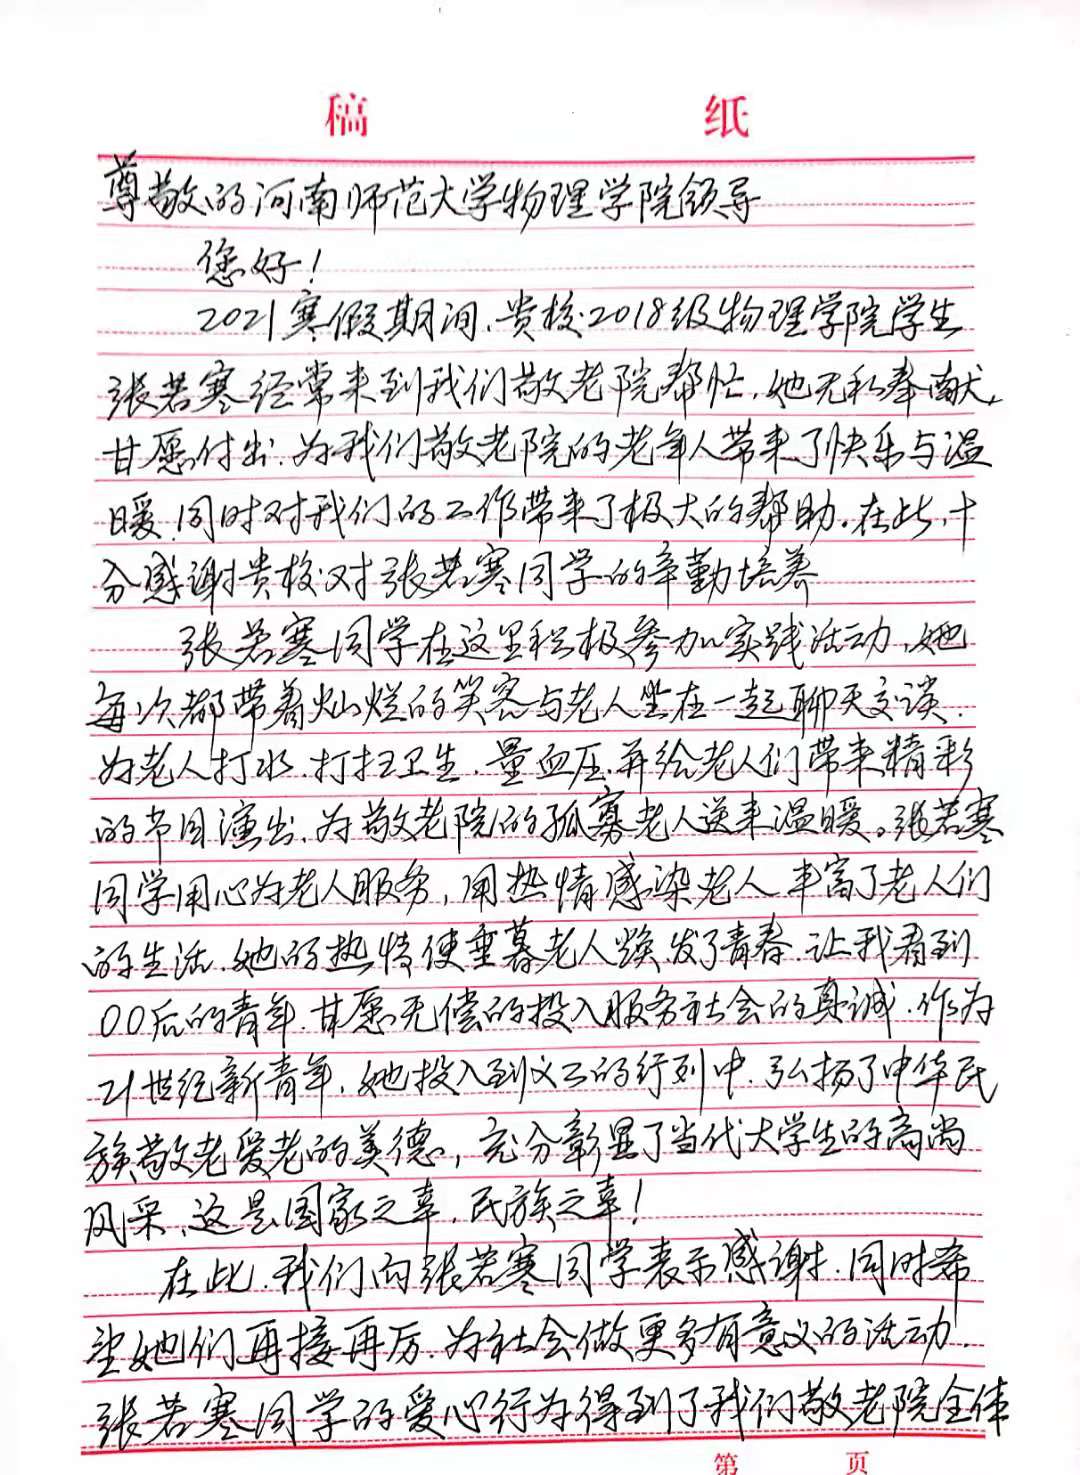 稿 纸
尊敬的河南师范大学物理学院领导
您好！
2021寒假期间，贵校2018级物理学院学生
张若寒经常来到我们敬老院帮忙，她无私奉献，
甘愿付出，为我们敬老院的老年人带来了快乐与温
暖，同时对我们的工作带来了极大的帮助。在此，十
分感谢贵校对张若寒同学的辛勤培养
张若寒同学在这里积极参加实践活动，她
每次都带着灿烂的笑容与老人坐在一起聊天交谈，
为老人打水，打扫卫生，量血压，并给老人们带来精彩
的节目演出，为敬老院的孤寡老人送来温暖。张若寒
同学用心为老人服务，用热情感染老人，丰富了老人们
的生活，她的热情使垂暮老人焕发了青春，让我看到
00后的青年，甘愿无偿的投入服务社会的真诚，作为
21世纪新青年，她投入到义工的行列中，弘扬了中华民
族敬老爱老的美德，充分彰显了当代大学生的高尚
风采，这是国家之幸，民族之幸！
在此，我们向张若寒同学表示感谢，同时希
望她们再接再厉，为社会做更多有意义的活动，
张若寒同学的爱心行为得到了我们敬老院全体
第 页